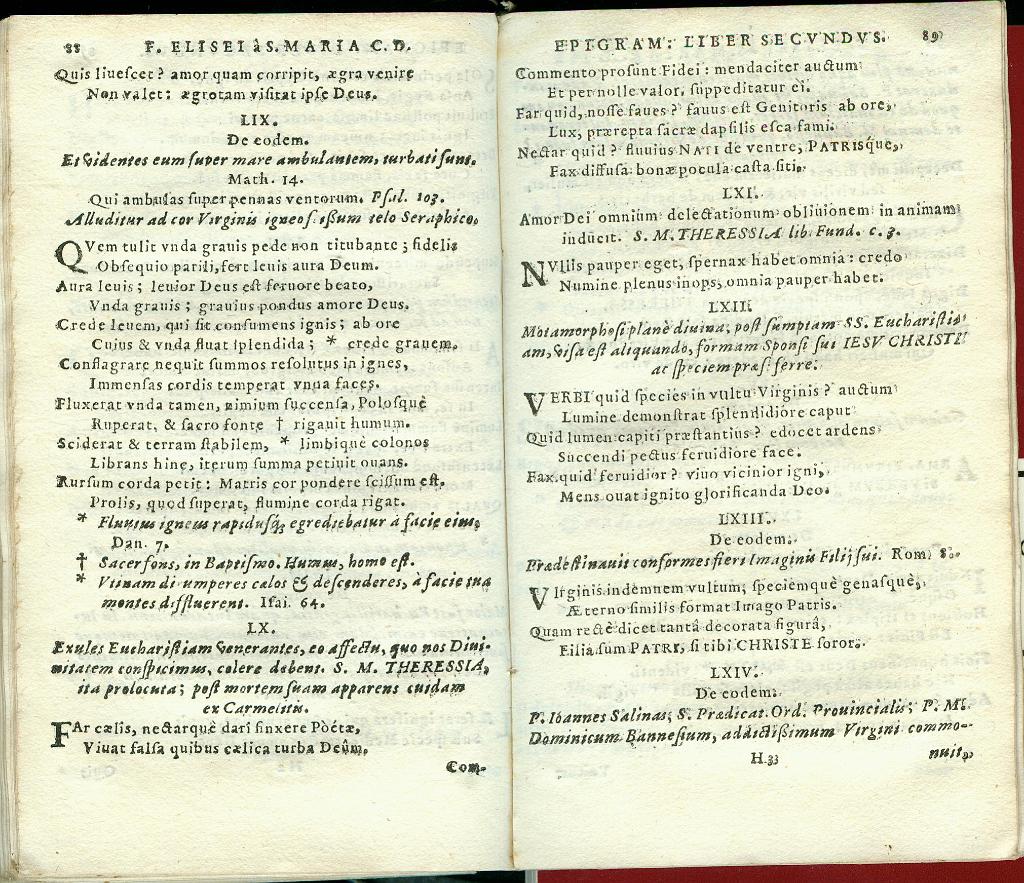 88 F. ELISEI à S. MARIA C. D.
Quis liuescet? amor quam corripit, ægra venire
Non valet: ægrotam visitat ipse Deus.
LIX.
De eodem.
Et videntes eum super mare ambulantem, turbati sunt.
Math. 14.
Qui ambulas super pennas ventorum. Psal. 103.
Alluditur ad cor Virginis igneo fissum telo Seraphico.
QVem tulit vnda grauis pede non titubante; fidelis
Obsequio parili, fert leuis aura Deum.
Aura leuis; leuior Deus est feruore beato,
Vnda grauis; grauius pondus amore Deus.
Crede leuem, qui sit consumens ignis; ab ore
Cuius & vnda fluat splendida; * crede grauem.
Conflagrare nequit summos resolutus in ignes,
Immensas cordis temperat vnda faces.
Fluxerat vnda tamen, nimium succensa, Polosquè
Ruperat, & sacro fonte † rigauit humum.
Sciderat & terram stabilem, * limbiquè colonos
Librans hinc, iterum summa petiuit ouans.
Rursum corda petit: Matris cor pondere scissum est.
Prolis, quod superat, flumine corda rigat.
* Fluuius igneus rapidusq, egrediebatur à facie eius,
Dan. 7.
† Sacer fons, in Baptismo. Humus, homo est.
* Vtinam dirumperes cælos & descenderes, à facie tua
montes diffluerent. Isai. 64.
LX.
Exules Eucharistiam venerantes, eo affectu, quo nos Diui-
nitatem conspicimus, colere debent. S. M. THERESSIA,
ita prolocuta; post mortem suam apparens cuidam
ex Carmelitis.
FAr cælis, nectarquè dari finxere Pòétæ,
Viuat falsa quibus cælica turba Deûm,
Com-
EPIGRAM: LIBER SECVNDVS. 89
Commento prosunt Fidei: mendaciter auctum
Et per nolle valor, suppeditatur ei.
Far quid, nosse faues? fauus est Genitoris ab ore,
Lux, prærepta sacræ dapsilis esca fami.
Nectar quid? fluuius NATI de ventre, PATRISquè,
Fax diffusa: bonæ pocula casta siti.
LXI.
Amor Dei omnium delectationum obliuionem in animam
inducit. S. M. THERESSIA lib. Fund. c. 3.
NVllis pauper eget, spernax habet omnia: credo
Numine plenus inops, omnia pauper habet.
LXII.
Metamorphosi planè diuina, post sumptam SS. Eucharisti-
am, visa est aliquando, formam Sponsi sui IESV CHRISTI
ac speciem præs ferre.
VERBI quid species in vultu Virginis? auctum
Lumine demonstrat splendidiôre caput
Quid lumen capiti præstantius? edocet ardens
Succendi pectus feruidiore face.
Fax quid feruidior? viuo vicinior igni,
Mens ouat ignito glorificanda Deo.
LXIII.
De eodem.
Prædestinauit conformes fieri Imaginis Filij sui. Rom. 8.
VIrginis indemnem vultum, speciemquè genasquè,
Æterno similis format Imago Patris.
Quam rectè dicet tantâ decorata figurâ,
Filia sum PATRI, si tibi CHRISTE soror.
LXIV.
De eodem.
P. Ioannes Salinas, S. Prædicat. Ord. Prouincialis; P. M.
Dominicum Bannesium, addictissimum Virgini commo-
H 33 nuit,